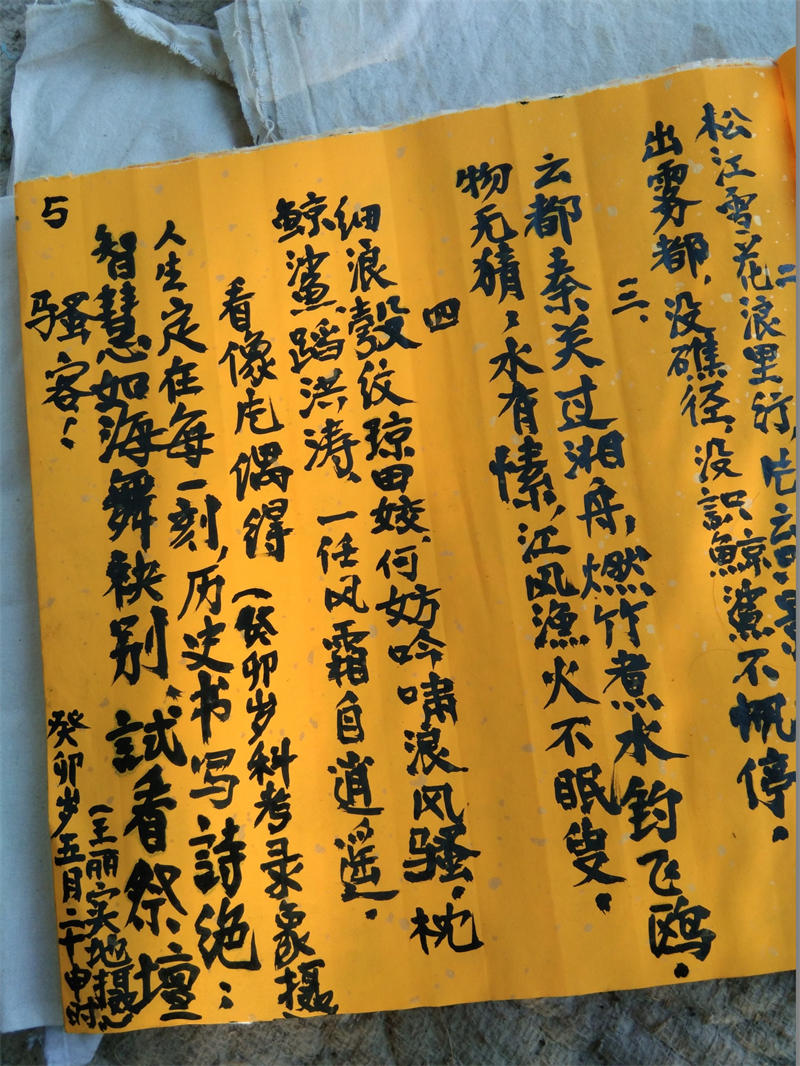 二
松江雪花浪里行，片云
出雾都，没礁径，没识鲸鲨不帆停。
三、
云都秦关过湘舟，燃竹煮水钓飞鸥。
物无猜，水有愫，江风渔火不眠叟。
四
细浪縠纹琼田姣，何妨吟啸浪风骚，枕
鲸鲨蹈洪涛、一任风霜自逍遥。
看像片偶得（癸卯岁科考录象摄
人生定在每一刻，历史书写詩绝；
智慧如海舞袂别 試看祭壇
骚客！
（王丽实地摄
癸卯岁五月二十申时
5